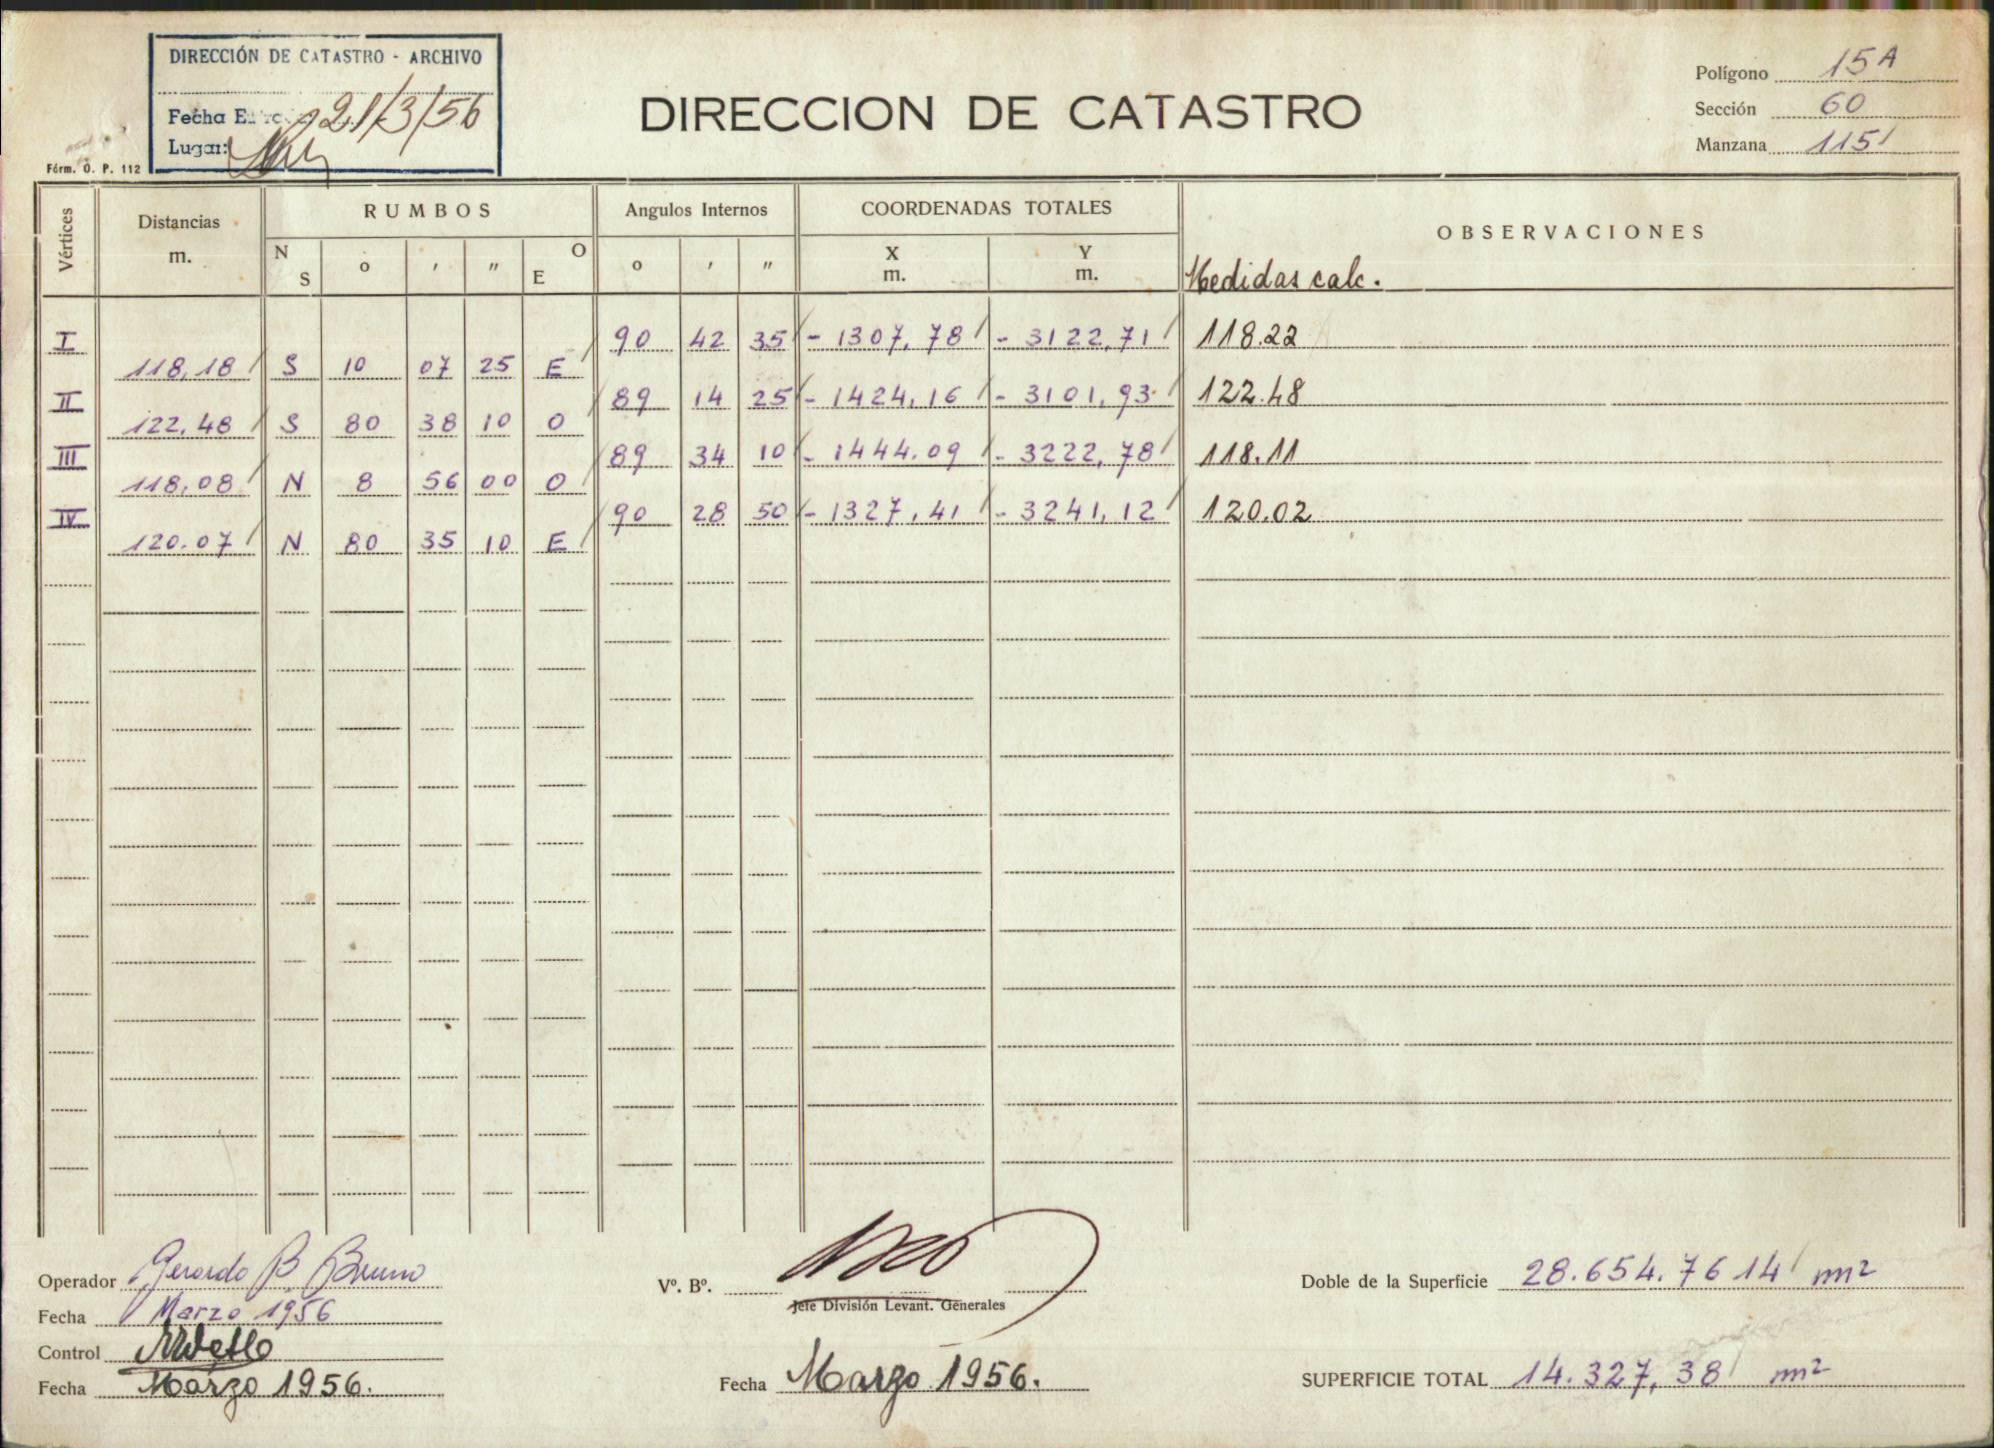 DIRECCIÓN DE CATASTRO - ARCHIVO
Fecha 21/3/56
Lugar:
Fórm. O. P. 112
DIRECCION DE CATASTRO
Polígono 15A
Sección 60
Manzana 115
Vértices Distancias m. RUMBOS Angulos Internos COORDENADAS TOTALES OBSERVACIONES
N S o ' " O E o ' " X m. Y m. Medidas calc.
I 90 42 35 - 1307,78 - 3122,71 118.22
118,18 S 10 07 25 E
II 89 14 25 - 1424,16 - 3101,93 122.48
122,48 S 80 38 10 O
III 89 34 10 - 1444.09 - 3222,78 118.11
118,08 N 8 56 00 O
IV 90 28 50 - 1327,41 - 3241,12 120.02
120.07 N 80 35 10 E
Operador Gerardo B Bruno
Fecha Marzo 1956
Control
Fecha Marzo 1956.
Vº. Bº.
Jefe División Levant. Generales
Fecha Marzo 1956.
Doble de la Superficie 28.654.7614 m²
SUPERFICIE TOTAL 14.327,38 m²